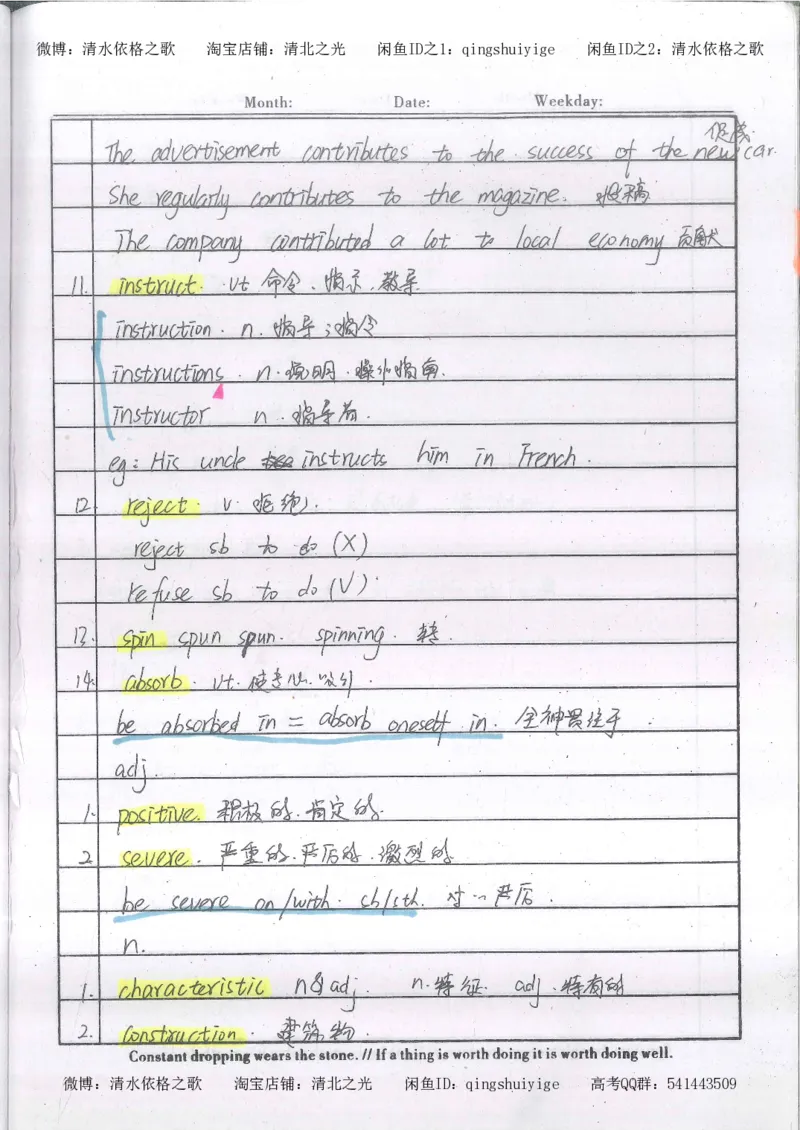 微博：清水依格之歌 淘宝店铺：清北之光 闲鱼ID之1：qingshuiyige 闲鱼ID之2：清水依格之歌
Month: Date: Weekday:
促成.
The advertisement contributes to the success of the new car.
She regularly contributes to the magazine. 投稿
The company contributed a lot to local economy 贡献
11. instruct. vt 命令、指示、教导
instruction. n. 指导；指令
instructions. n. 说明. 操作指南.
instructor n. 指导者.
eg: His uncle instructs him in French.
12. reject. v. 拒绝.
reject sb to do (X)
refuse sb to do (V)
13. spin spun spun. spinning. 转.
14. absorb. vt. 使专心. 吸引.
be absorbed in = absorb oneself in. 全神贯注于.
adj.
1. positive. 积极的. 肯定的.
2 severe. 严重的. 严厉的. 激烈的.
be severe on/with. sb/sth. 对…严厉.
n.
1. characteristic n&adj. n. 特征. adj. 特有的
2. construction. 建筑物.
Constant dropping wears the stone. // If a thing is worth doing it is worth doing well.
微博：清水依格之歌 淘宝店铺：清北之光 闲鱼ID：qingshuiyige 高考QQ群：541443509